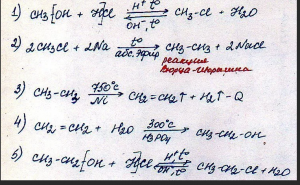 1) CH3[OH + H]Cl ⇄ (H⁺ t° / OH⁻, t°) CH3-Cl + H2O
2) 2CH3Cl + 2Na → (t° / абс. эфир) CH3-CH3 + 2NaCl
реакция
Вюрца-Шорыгина
3) CH3-CH3 → (750°C / Ni) CH2=CH2↑ + H2↑ - Q
4) CH2=CH2 + H2O → (300°C / H3PO4) CH3-CH2-OH
5) CH3-CH2[OH + H]Cl ⇄ (H⁺ t° / OH⁻, t°) CH3-CH2-Cl + H2O